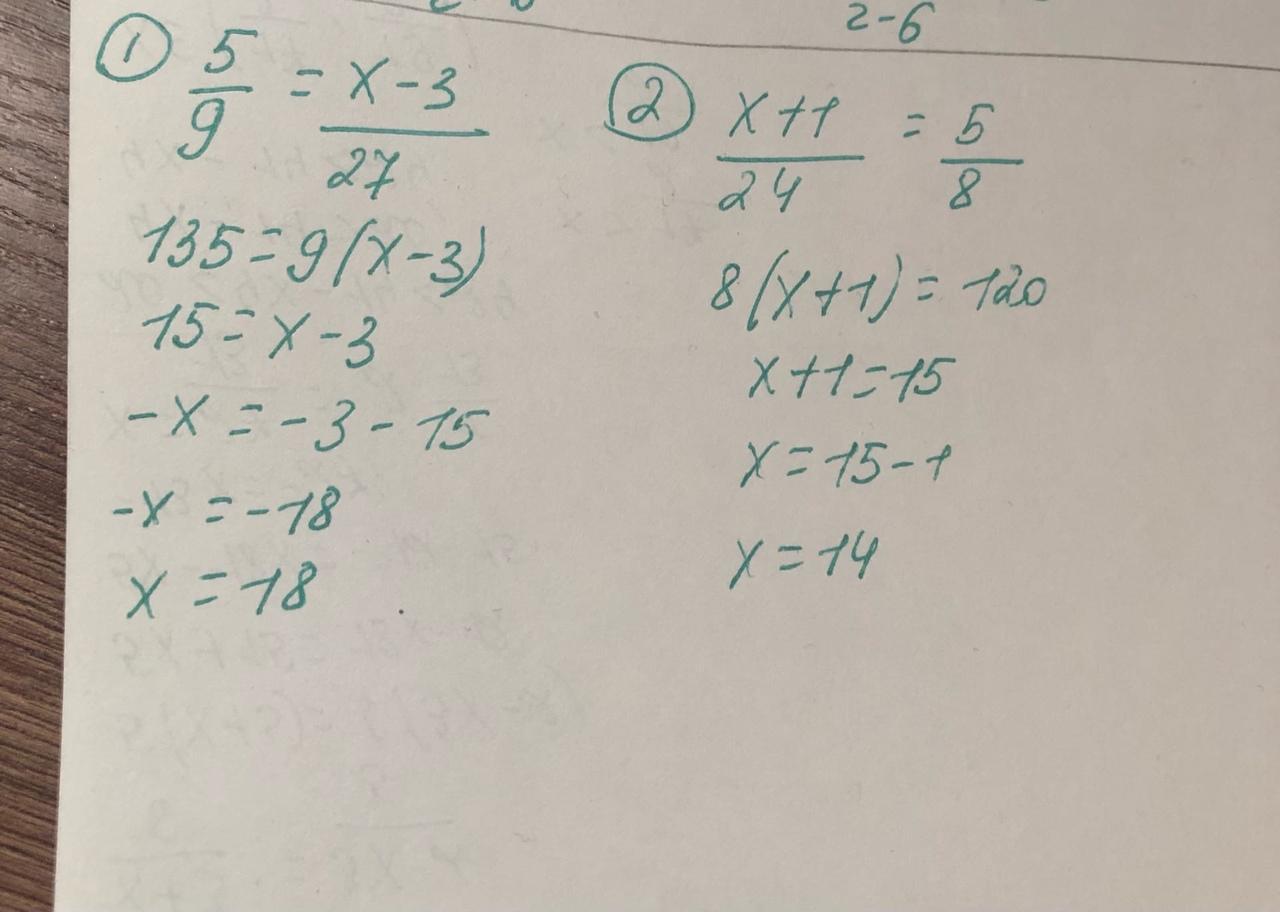 2-6
① 5/9 = x-3/27
135=9(x-3)
15=x-3
-x=-3-15
-x=-18
x=18
② x+1/24 = 5/8
8(x+1)=120
x+1=15
x=15-1
x=14